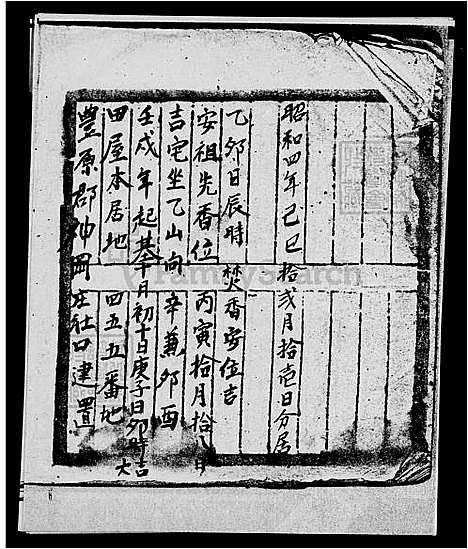 豐原郡神岡庄社口建置
田屋本居地 四五五番地
壬戌年起基十月初十日庚子日卯時大吉
吉宅坐乙山向辛兼卯酉
安祖先香位 丙寅拾月拾八日
乙卯日辰時焚香安位吉
昭和四年己巳拾弍月拾壱日分居
FamilySearch